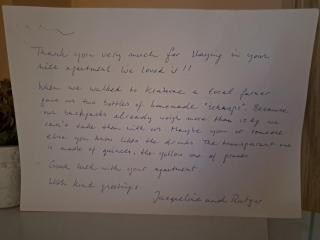 Thank you very much for staying in your
nice apartment. We loved it!!
When we walked to a local farmer
gave us two bottles of homemade "schnaps". Because
our backpacks already weigh more than 15 kg we
can't take them with us. Maybe you or someone
else you know likes the drinks. The transparant one
is made of quinces, the yellow one of prunes
Good luck with your apartment
With kind greetings
Jacqueline and Rutger